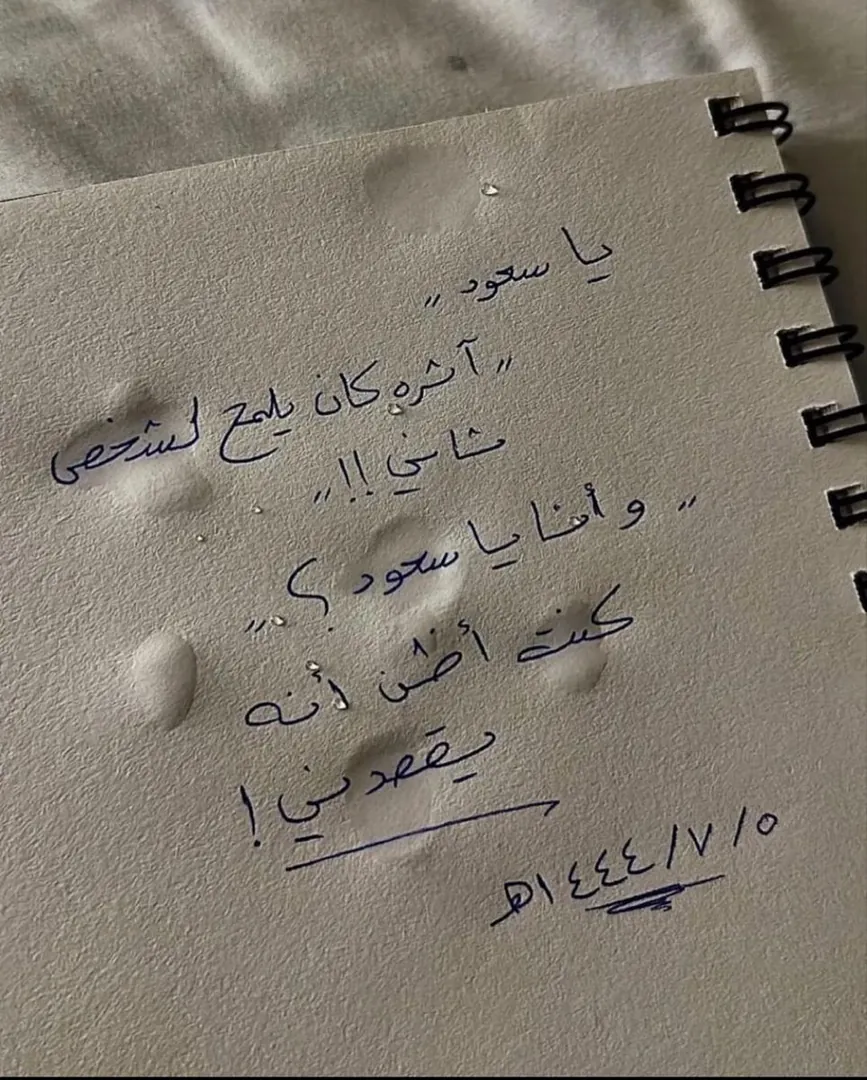 يا سعود ,,
,, آثره كان يلمح لشخص
ثاني !! ,,
,, و أنا يا سعود ؟ ,,
كنت أظن أنه
يقصدني !
٥ / ٧ / ١٤٤٤هـ